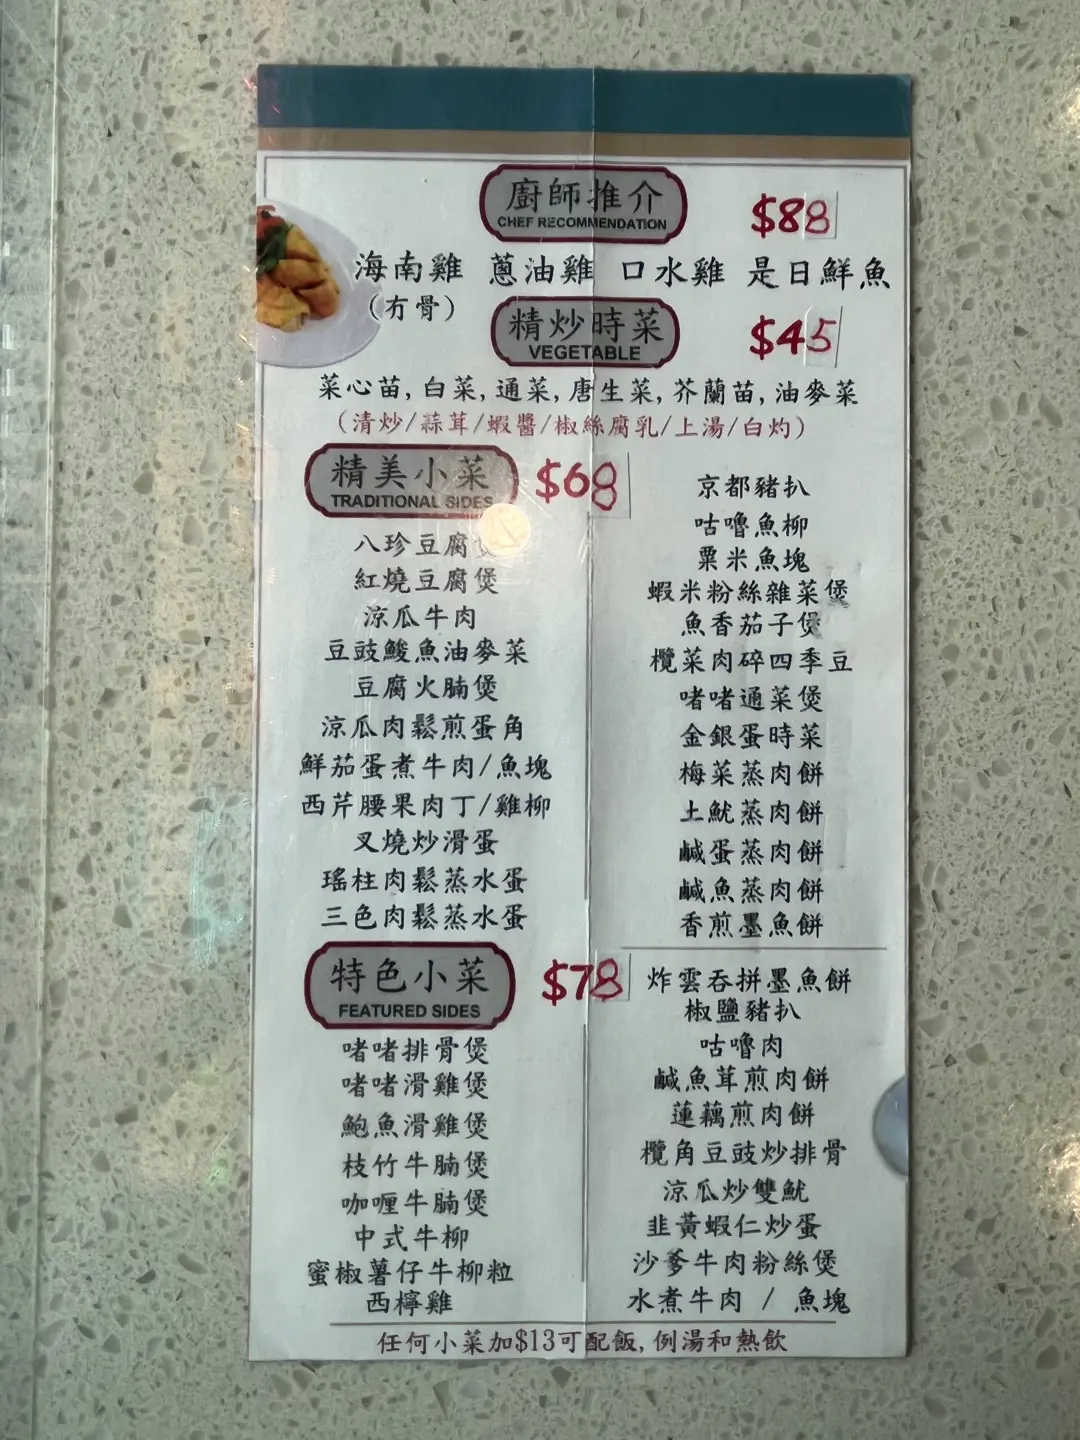 廚師推介
CHEF RECOMMENDATION
$88
海南雞 蔥油雞 口水雞 是日鮮魚
(冇骨)
精炒時菜
VEGETABLE
$45
菜心苗, 白菜, 通菜, 唐生菜, 芥蘭苗, 油麥菜
(清炒/蒜茸/蝦醬/椒絲腐乳/上湯/白灼)
精美小菜
TRADITIONAL SIDES
$68
八珍豆腐煲
紅燒豆腐煲
涼瓜牛肉
豆豉鯪魚油麥菜
豆腐火腩煲
涼瓜肉鬆煎蛋角
鮮茄蛋煮牛肉/魚塊
西芹腰果肉丁/雞柳
叉燒炒滑蛋
瑤柱肉鬆蒸水蛋
三色肉鬆蒸水蛋
京都豬扒
咕嚕魚柳
粟米魚塊
蝦米粉絲雜菜煲
魚香茄子煲
欖菜肉碎四季豆
啫啫通菜煲
金銀蛋時菜
梅菜蒸肉餅
土魷蒸肉餅
鹹蛋蒸肉餅
鹹魚蒸肉餅
香煎墨魚餅
特色小菜
FEATURED SIDES
$78
啫啫排骨煲
啫啫滑雞煲
鮑魚滑雞煲
枝竹牛腩煲
咖喱牛腩煲
中式牛柳
蜜椒薯仔牛柳粒
西檸雞
炸雲吞拼墨魚餅
椒鹽豬扒
咕嚕肉
鹹魚茸煎肉餅
蓮藕煎肉餅
欖角豆豉炒排骨
涼瓜炒雙魷
韭黃蝦仁炒蛋
沙爹牛肉粉絲煲
水煮牛肉 / 魚塊
任何小菜加$13可配飯, 例湯和熱飲